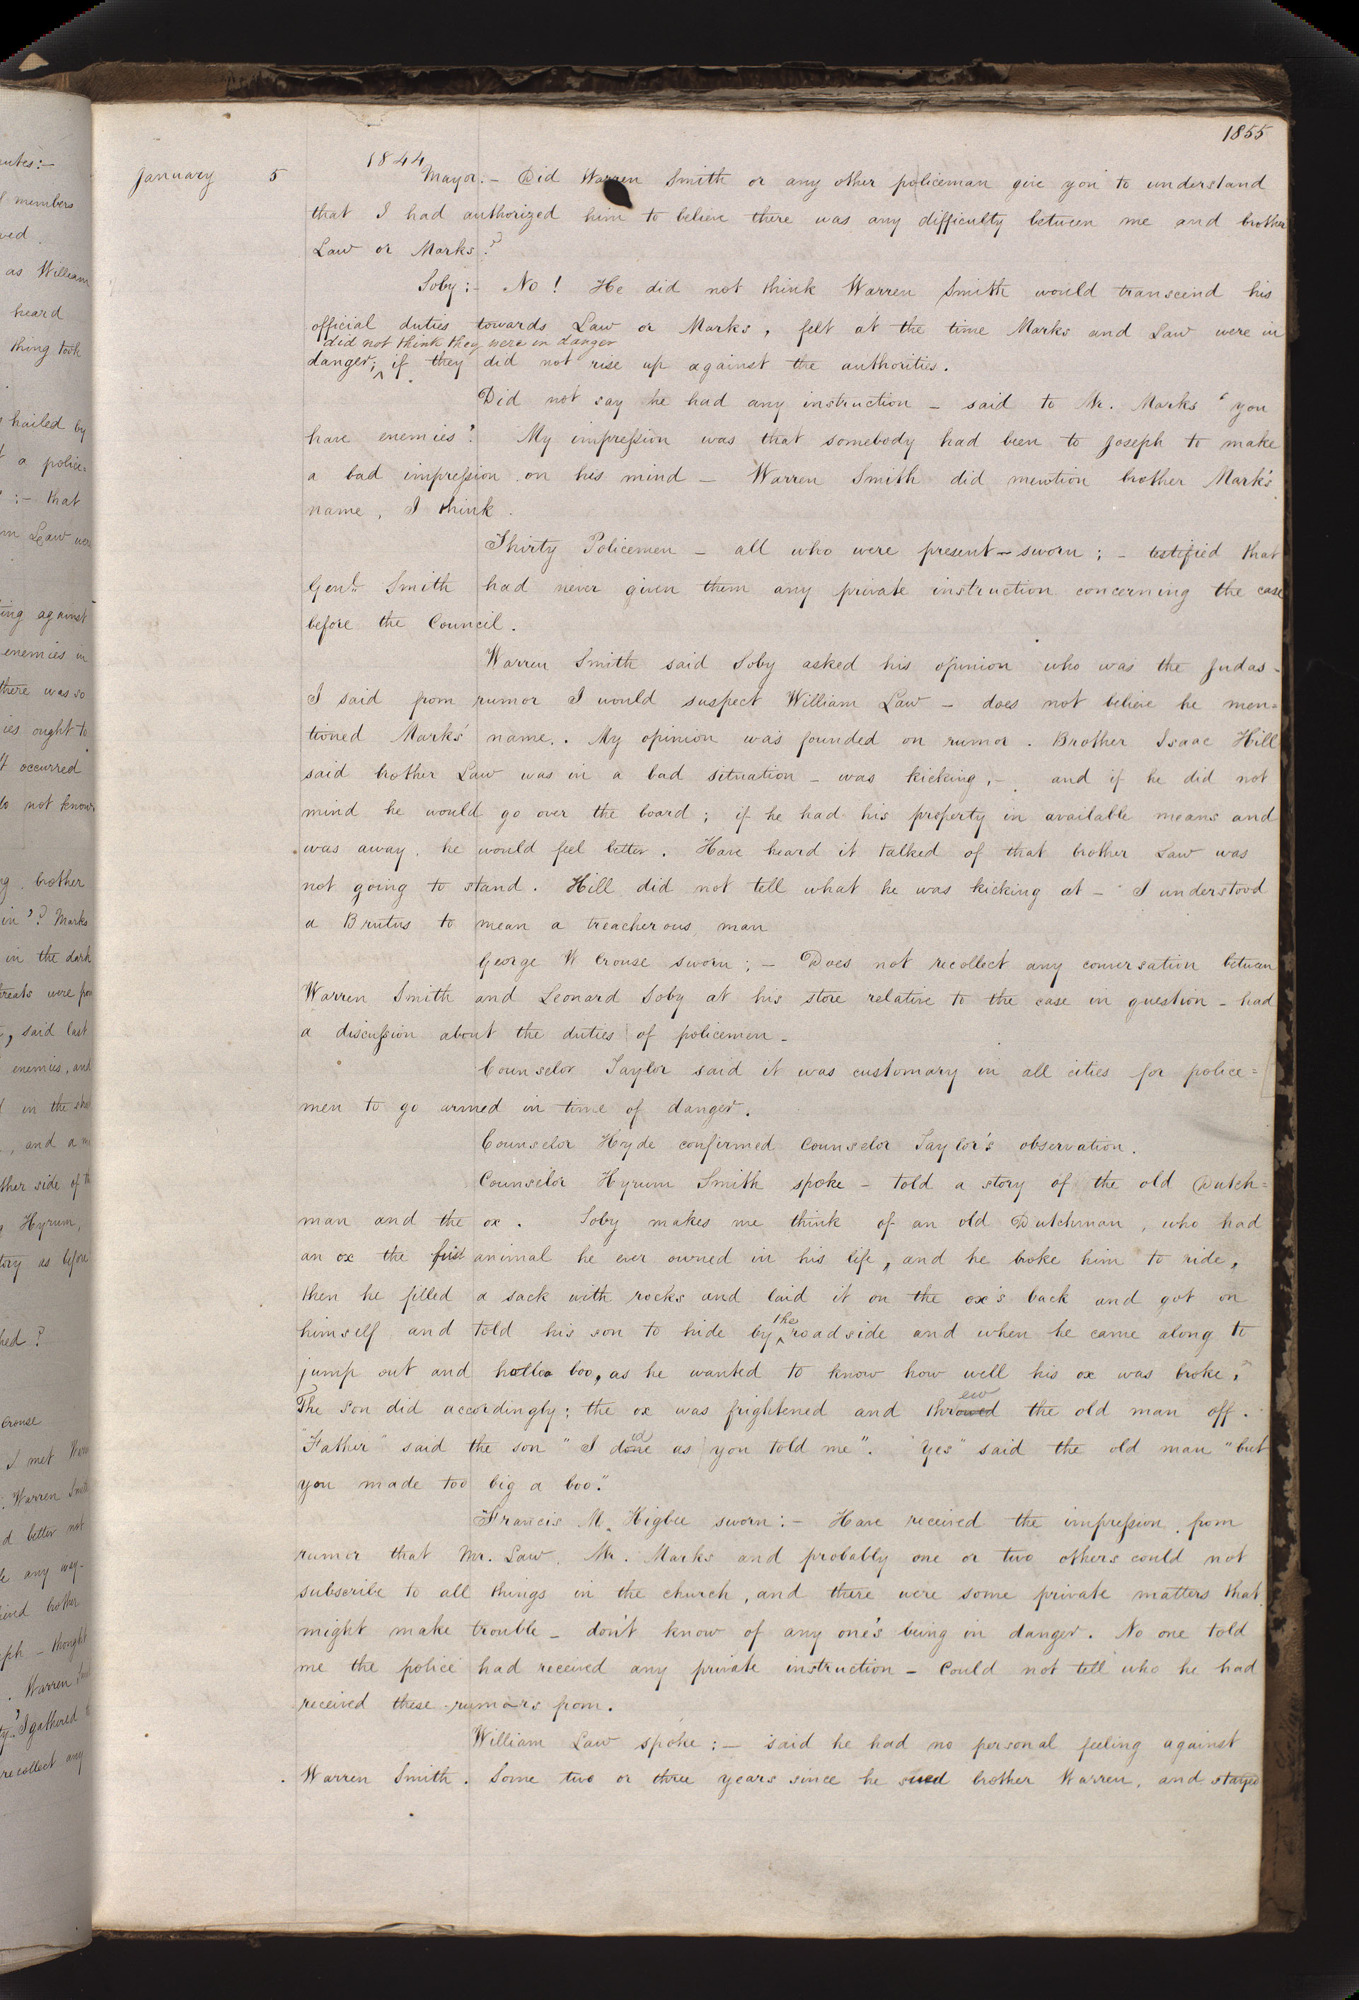 1855
1844
January 5
Mayor:— Did Warren Smith or any other policeman give you to understand
that I had authorized him to believe there was any difficulty between me and brother
Law or Marks?
Soby:— No! He did not think Warren Smith would transcend his
official duties towards Law or Marks, felt at the time Marks and Law were in
did not think they were in danger
danger; ^ if they did not rise up against the authorities.
Did not say he had any instruction — said to Mr. Marks "you
have enemies". My impression was that somebody had been to Joseph to make
a bad impression on his mind — Warren Smith did mention brother Mark's
name, I think.
Thirty Policemen — all who were present — sworn; — testified that
Genl. Smith had never given them any private instruction concerning the case
before the Council.
Warren Smith said Soby asked his opinion who was the Judas —
I said from rumor I would suspect William Law — does not believe he men=
tioned Marks' name. My opinion was founded on rumor. Brother Isaac Hill
said brother Law was in a bad situation — was kicking, — and if he did not
mind he would go over the board; if he had his property in available means and
was away, he would feel better. Have heard it talked of that brother Law was
not going to stand. Hill did not tell what he was kicking at — I understood
a Brutus to mean a treacherous man
George W Crouse sworn; — Does not recollect any conversation between
Warren Smith and Leonard Soby at his store relative to the case in question — had
a discussion about the duties of policemen —
Counselor Taylor said it was customary in all cities for police=
men to go armed in time of danger.
Counselor Hyde confirmed Counselor Taylor's observation.
Counselor Hyrum Smith spoke — told a story of the old Dutch=
man and the ox. Soby makes me think of an old Dutchman, who had
an ox the first animal he ever owned in his life, and he broke him to ride,
then he filled a sack with rocks and laid it on the ox's back and got on
himself and told his son to hide by ^the roadside and when he came along to
jump out and holloa boo, as he wanted to know how well his ox was broke.
The son did accordingly; the ox was frightened and throwed ew the old man off.
"Father" said the son "I done id as you told me". "Yes" said the old man "but
you made too big a boo."
Francis M. Higbee sworn:— Have received the impression from
rumor that Mr. Law, Mr. Marks and probably one or two others could not
subscribe to all things in the church, and there were some private matters that
might make trouble — don't know of any one's being in danger. No one told
me the police had received any private instruction — Could not tell who he had
received these rumors from.
William Law spoke:— said he had no personal feeling against
Warren Smith. Some two or three years since he sued brother Warren, and stayed